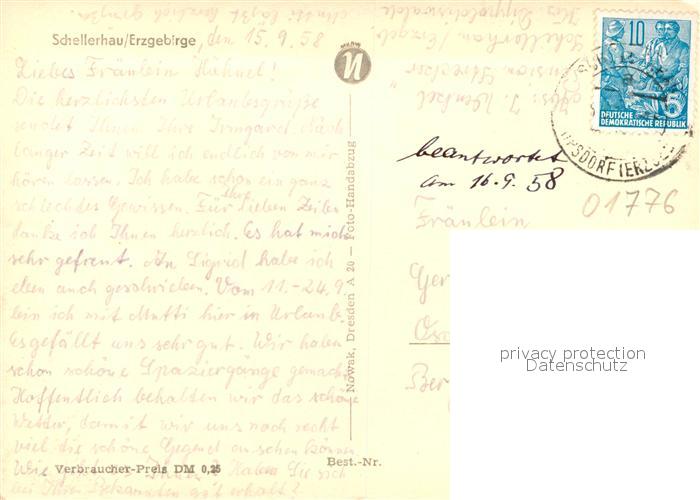 Schellerhau/Erzgebirge, den 15.9.58
Liebes Fräulein Hähnel!
Die herzlichsten Urlaubsgrüße
sendet Ihnen Ihre Irmgard. Nach
langer Zeit will ich endlich von mir
hören lassen. Ich habe schon ein ganz
schlechtes Gewissen. Für die lieben Zeilen
danke ich Ihnen herzlich. Es hat mich
sehr gefreut. An Sigrid habe ich
eben auch geschrieben. Vom 11.-24.9.
bin ich mit Mutti hier in Urlaub.
Es gefällt uns sehr gut. Wir haben
schon schöne Spaziergänge gemacht.
Hoffentlich behalten wir das schöne
Wetter, damit wir uns noch recht
viel die schöne Gegend ansehen können.
Wie Ihnen? Haben Sie sich
bei Ihren Bekannten gut erholt?
Verbraucher-Preis DM 0,25
Best.-Nr.
Nowak, Dresden A 20 — Foto-Handabzug
herzlich grüßen
Abs: J.
Pension
Schellerhau/Erzgeb.
Krs. Dippoldiswalde
10
5
DEUTSCHE
DEMOKRATISCHE REPUBLIK
beantwortet
am 16.9.58
01776
Fräulein
Ger
Ber
privacy protection
Datenschutz